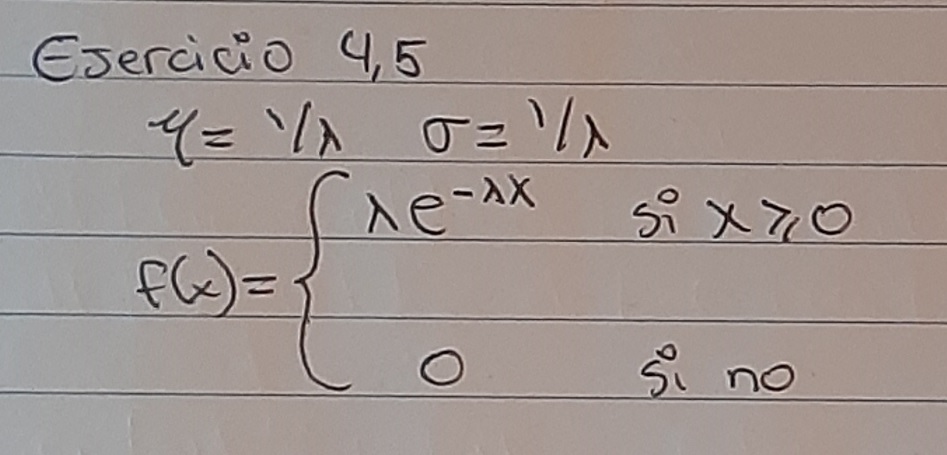 Ejercicio 4,5
μ = 1/λ σ = 1/λ
f(x) = { λe^-λx si x ⩾ 0
0 si no